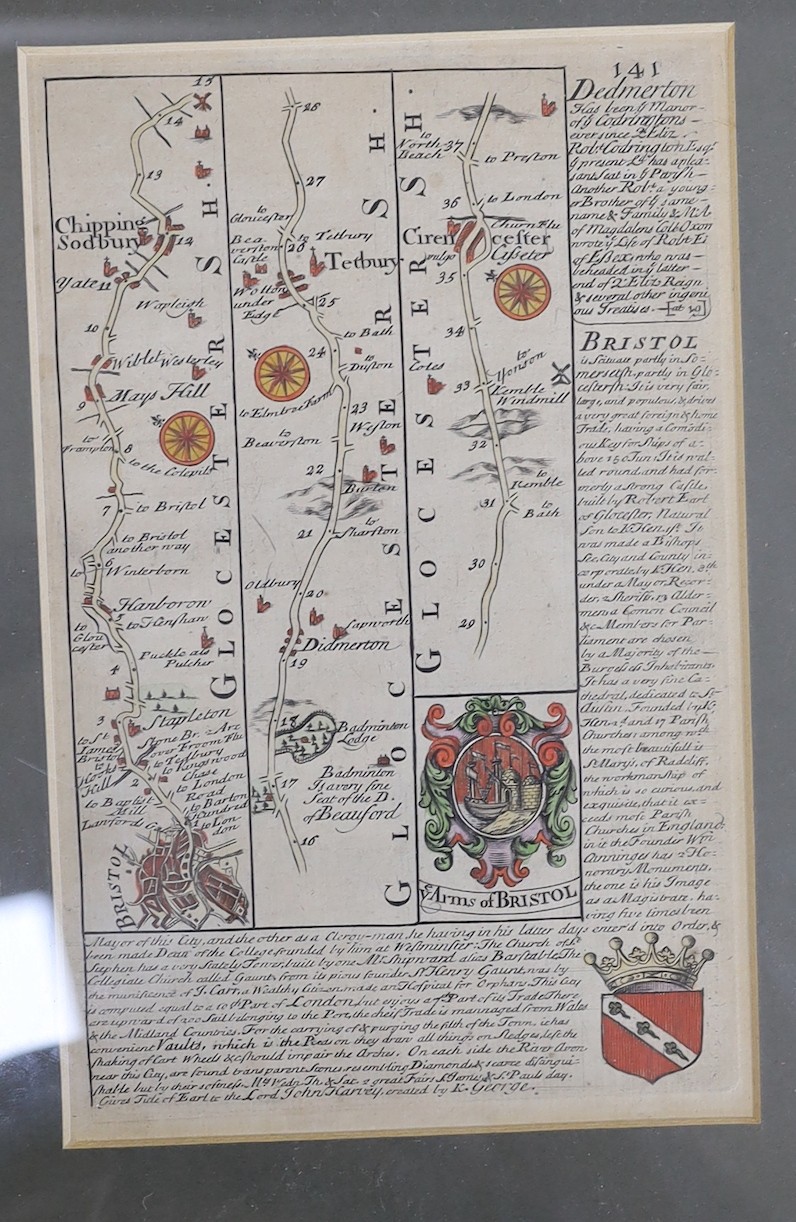 141
15
14
13
Chipping
Sodbury
12
Yate
11
Wapleigh
10
Wiblet Westerley
Mays Hill
9
to
Frampton
8
to the Colepits
7
to Bristol
to Bristol
another way
to
6
Winterborn
Hanborow
to Kensham
to
Glou
cester
Puckle als
Pulcher
4
3
Stapleton
to St
James
Bristol
Stone Br. 2 Arc
over Froom Flu
to Tedbury
to Kingswood
Chase
Hooks
Hill
2
to London
Road
to Baptist
Mill
to Barton
Hundred
Lanford's G
1
to Lon
don
BRISTOL
GLOCESTER SH.
28
27
to
Gloucester
to Tetbury
Bea
verston
Castle
26
Tetbury
Wotton
under
Edge
25
to Bath
24
to
Elmtree Farm
23
Weston
to
Beaverston
22
Burton
21
to
Sharston
Oldbury
20
Sapworth
Didmerton
19
18
Badminton
Lodge
17
Badminton
Is a very fine
Seat of the D.
of Beauford
16
GLOCESTER SH.
to
North
Beach
37
to Preston
36
to London
Churn Flu
Ciren cester
vulgo Cisseter
35
34
Cotes
33
Kemble
Windmill
32
to
Kemble
31
to
Bath
30
29
GLOCESTER SH
ye Arms of BRISTOL
Dedmerton
Has been ye Manor
of ye Codringtons
ever since Q. Eliz.
Robt. Codrington Esqr.
ye present Ld. has a plea-
sant Seat in ye Parish
Another Robt. a young-
er Brother of ye same
name & Family & M.A.
of Magdalens Coll. Oxon
wrote ye Life of Robt. E.
of Essex, who was
beheaded in ye latter
end of Q. Eliz's Reign
& several other ingeni
ous Treatises.
BRISTOL
is scituate partly in So-
mersetsh. partly in Glo-
cestersh. It is very fair,
large, and populous, & drives
a very great foreign & home
Trade, having a Comodi-
ous Key for Ships of a-
bove 150 Tun. It is wal-
led round, and had for-
merly a strong Castle,
built by Robert Earl
of Glocester, Natural
Son to K. Hen. 1st. It
was made a Bishops
See, City and County in-
corporate, by K. Hen. 8th
under a Mayor, Recor-
der, 2 Sheriffs, 13 Alder-
men, a Comon Council
&c. Members for Par-
liament are chosen
by a Majority of the
Burgesses Inhabitants
It has a very fine Ca-
thedral, dedicated to St.
Austin, Founded by K.
Hen. and 17 Parish
Churches among wch.
the most beautifull is
St. Mary's, of Radcliff,
the workmanship of
which is so curious, and
exquisite, that it ex-
ceeds most Parish
Churches in England.
in it the Founder Wm.
Canninges has 2 Ho-
norary Monuments,
the one is his Image
as a Magistrate, ha-
ving five times been
Mayor of this City, and the other as a Clergy-man, he having in his latter days enter'd into Order, &
been made Dean of the College founded by him at Westminster. The Church of St.
Stephen has a very Stately Tower, built by one Mr. Shipward alias Barstable. The
Collegiate Church called Gaunts from its pious founder Sr. Henry Gaunt, was by
the munificence of J. Carr, a Wealthy Citizen, made an Hospital for Orphans. This City
is computed equal to a 10th Part of London, but enjoys a 7th Part of its Trade There
are upward of 200 Sail belonging to the Port, the chief Trade is mannaged from Wales
& the Midland Countries. For the carrying of & purging the filth of the Town, it has
convenient Vaults, which is the Reason they draw all things on Sledges, lest the
shaking of Cart Wheels &c. should impair the Arches. On each side the River Avon
near this City, are found transparent Stones, resembling Diamonds, & scarce distingui-
shable but by their softness. Mt. Wedn. Th. & Sat. 2 great Fairs St. James & St. Pauls day.
Gives Title of Earl to the Lord John Harvey, created by K. George.